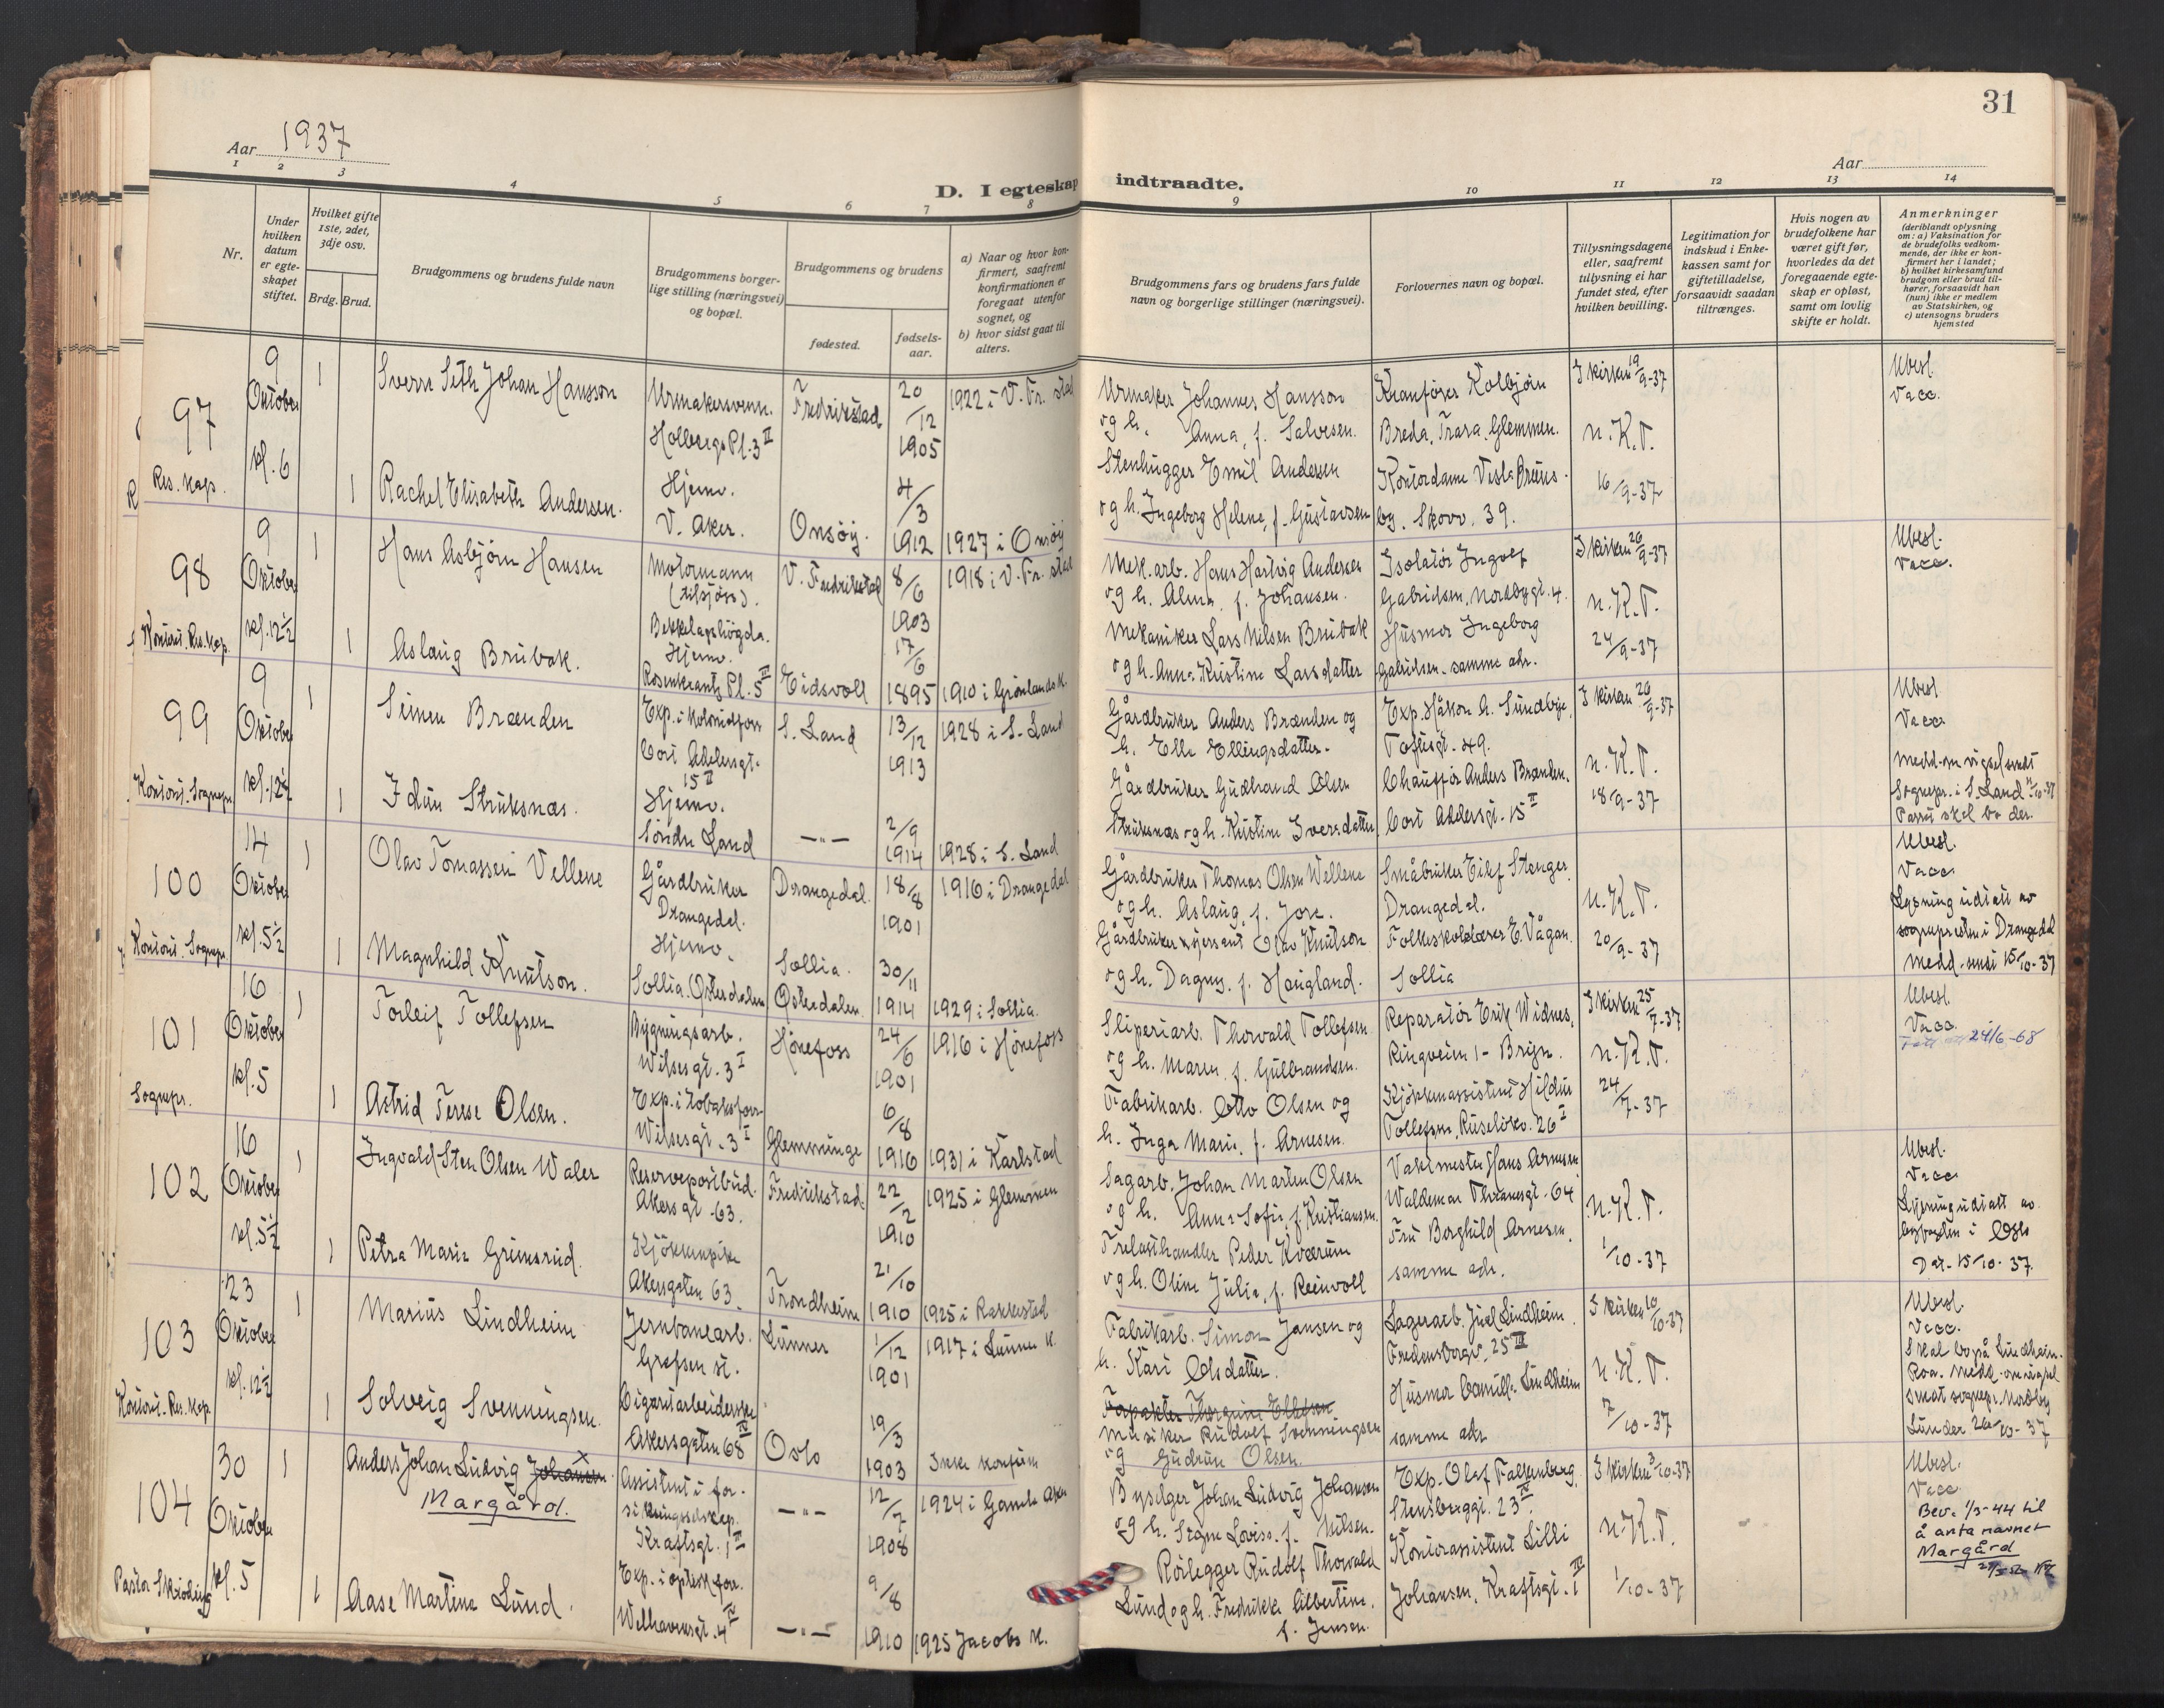 31
Aar 1937
Aar
D. I egteskap indtraadte.
1 2 3 4 5 6 7 8 9 10 11 12 13 14
Nr.
Under hvilken datum er egteskapet stiftet.
Hvilket gifte 1ste, 2det, 3dje osv.
Brdg. Brud.
Brudgommens og brudens fulde navn
Brudgommens borgerlige stilling (næringsvei) og bopæl.
Brudgommens og brudens
fødested.
fødselsaar.
a) Naar og hvor konfirmert, saafremt konfirmationen er foregaat utenfor sognet, og
b) hvor sidst gaat til alters.
Brudgommens fars og brudens fars fulde navn og borgerlige stillinger (næringsvei).
Forlovernes navn og bopæl.
Tillysningsdagene eller, saafremt tillysning ei har fundet sted, efter hvilken bevilling.
Legitimation for indskud i Enkekassen samt for giftetilladelse, forsaavidt saadan tiltrænges.
Hvis nogen av brudefolkene har været gift før, hvorledes da det foregaaende egteskap er opløst, samt om lovlig skifte er holdt.
Anmerkninger
(deriblandt oplysning om: a) Vaksination for de brudefolks vedkommende, der ikke er konfirmert her i landet;
b) hvilket kirkesamfund brudgom eller brud tilhører, forsaavidt han (hun) ikke er medlem av Statskirken, og
c) utensogns bruders hjemsted
97
Res. kap.
9 Oktober kl. 6
1 Sverre Seth Johan Hansson
Urmakersvenn. Holbergs Pl. 3 II
Fredrikstad
20/12 1905
1922 i V. Fr. stad
Urmaker Johannes Hansson
og h. Anna, f. Salvesen.
Kranfører Kolbjørn
Breda, Trara, Glemmen.
I kirken 19/9-37
Ubesl.
Vacc.
1 Rachel Elisabeth Andersen.
Hjemv. V. Aker.
Onsøy.
4/3 1912
1927 i Onsøy
Stenhugger Emil Andersen
og h. Ingeborg Helene, f. Gustavsen
Kontordame Vesla Preus-
by. Skovv. 39.
n. K. T.
16/9-37
98
Kontoret. Res. kap.
9 Oktober kl. 12½
1 Hans Asbjørn Hansen
Motormann (tilsjøss). Bekkelagshøgda.
V. Fredrikstad
8/6 1903
1918 i V. Fr. stad
Mek. arb. Hans Hartvig Andersen
og h. Alma, f. Johansen.
Isolatør Ingolf
Gabrielsen, Nordbygt. 4.
I kirken 26/9-37
Ubesl.
Vacc.
1 Aslaug Brubak.
Hjemv. Rosenkrantz Pl. 5 IV
Eidsvoll
17/6 1895
1910 i Grønlands k.
Mekaniker Lars Nilsen Brubak
og h. Anna Kristine Larsdatter
Husmor Ingeborg
Gabrielsen. samme adr.
n. K. T.
24/9-37
99
Kontoret. Sognepr.
9 Oktober kl. 12½
1 Simen Brænden
Exp. i kolonialforr. Cort Adelersgt. 15 II
S. Land
13/12 1913
1928 i S. Land
Gårdbruker Anders Brænden og
h. Elle Ellingsdatter.
Exp. Håkon A. Sundbye,
Toftesgt. 49.
I kirken 26/9-37
Ubesl
Vacc.
1 Idun Struksnæs.
Hjemv. Søndre Land
-"-
2/9 1914
1928 i S. Land
Gårdbruker Gudbrand Olsen
Struksnæs og h. Kristine Iversdatter
Chauffør Anders Brænden.
Cort Adelersgt. 15 II
n. K. T.
18/9-37
Medd. om vigsel sendt
Sognepr. i S. Land 11/10-37
Parret skal bo der.
100
Kontoret. Sognepr.
14 Oktober kl. 5½
1 Olav Tomassen Vellene
Gårdbruker Drangedal.
Drangedal.
18/8 1901
1916 i Drangedal
Gårdbruker Thomas Olsen Wellene
og h. Aslaug, f. Jore.
Småbruker Eilef Stenger,
Drangedal.
Ubesl.
Vacc.
1 Magnhild Knutson.
Hjemv. Sollia. Østerdalen
Sollia. Østerdalen
30/11 1914
1929 i Sollia.
Gårdbruker, kjørsent Olav Knutson
og h. Dagny, f. Haugland.
Folkeskolelærer E. Vågan.
Sollia
n. K. T.
20/9-37
Lysning utstedt av
sognepresten i Drangedal
Medd. sendt 15/10-37
101
Sognepr.
16 Oktober kl. 5
1 Torleif Tollefsen
Bygningsarb. Wilsesgt. 3 I
Hønefoss
24/6 1901
1916 i Hønefoss
Sliperiarb. Thorvald Tollefsen
og h. Maren, f. Gulbrandsen.
Reparatør Erik Widnes,
Ringveien 1 - Bryn.
I kirken 25/7-37
Ubesl.
Vacc.
24/6-68
1 Astrid Terese Olsen.
Exp. i tobaksforr. Wilsesgt. 3 I
Glemminge
6/8 1916
1931 i Karlstad
Fabrikarb. Otto Olsen og
h. Inga Marie, f. Arnesen.
Kjøkkenassistent Hildur
Tollefsen, Ruseløkkv. 26 I
n. K. T.
24/7-37
102
16 Oktober kl. 5½
1 Ingvald Sten Olsen Waler
Reservepostbud. Akersgt. 63.
Fredrikstad
22/2 1910
1925 i Glemmen
Sagarb. Johan Martin Olsen
og h. Anna Sofie, f. Kristiansen.
Vaktmester Hans Arnesen
Waldemar Thranesgt. 64
Ubesl.
Vacc.
1 Petra Marie Grimsrud.
Kjøkkenpike Akersgaten 63.
Trondheim
21/10 1910
1925 i Rakkestad
Trelasthandler Peder Kværum
og h. Oline Julie, f. Reinvoll
Fru Borghild Arnesen.
samme adr.
n. K. T.
1/10-37
Lysning utstedt av
byfogden i Oslo
Dat. 15/10-37.
103
Kontoret. Res. kap.
23 Oktober kl. 12½
1 Marius Lindheim
Jernbanearb. Grefsen st.
Lunner
1/12 1901
1917 i Lunner k.
Fabrikarb. Simon Jansen og
h. Kari Olsdatter.
Lagerarb. Juel Lindheim.
Fredensborgv. 25 III
I kirken 10/10-37
Ubesl.
Vacc.
1 Solveig Svenningsen.
Cigaretarbeiderske Akersgaten 68 IV
Oslo
19/3 1903
Ikke konfirm
Musiker Rudolf Svenningsen
og Gudrun Olsen.
Husmor Camilla Lindheim
samme adr
n. K. T.
7/10-37
Skal bo på Lindheim.
Roa. Medd. om vigsel
sendt sognepr. Nordby
Lunder 26/10-37
104
Pastor Skioldrup
30 Oktober kl. 5
1 Anders Johan Ludvig Johansen
Margård.
Assistent i forsikringsselskap. Kraftsgt. 1 II
-"-
12/7 1908
1924 i Gamle Aker
Byselger Johan Ludvig Johansen
og h. Signe Lovise, f. Nilsen.
Exp. Olaf Falkenberg.
Stensberggt. 23 IV.
I kirken 3/10-37
Ubesl.
Vacc
1 Aase Martine Lund.
Exp. i optisk forr. Welhavensgt. 4 IV
-"-
9/8 1910
1925 Jacobs k.
Rørlegger Rudolf Thorvald
Lund og h. Fredrikke Albertine,
f. Jensen.
Kontorassistent Lilli
Johansen, Kraftsgt. 1 II
n. K. T.
1/10-37
Bev. 1/3-44 til
å anta navnet
Margård